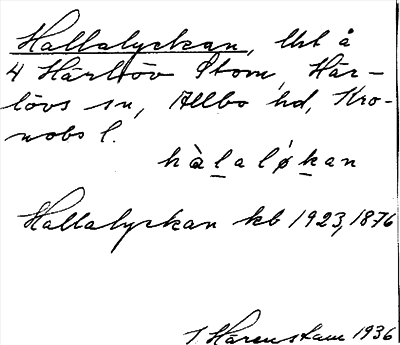 Hallalyckan, lht å
4 Härlöv Stom, Här-
lövs sn, Allbo hd, Kro-
nobs l.
hàlaløkan
Hallalyckan kb 1923, 1876
Härenstam 1936